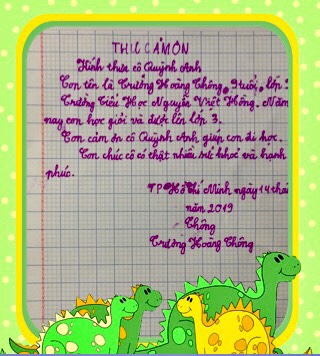 THƯ CẢM ƠN
Kính thưa cô Quỳnh Anh
Con tên là Trương Hoàng Thông, 9 tuổi, lớp
Trường Tiểu Học Nguyễn Việt Hồng. Năm
nay con học giỏi và được lên lớp 3.
Con cảm ơn cô Quỳnh Anh giúp con đi học.
Con chúc cô có thật nhiều sức khoẻ và hạnh
phúc.
TP Hồ Chí Minh ngày 14 thá
năm 2019
Thông
Trương Hoàng Thông